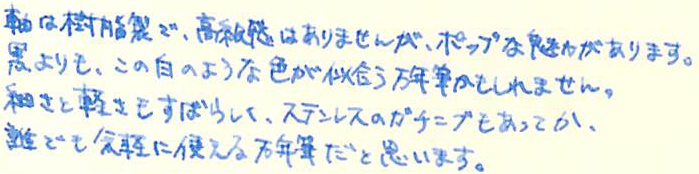 軸は樹脂製で、高級感はありませんが、ポップな魅力があります。
黒よりも、この白のような色が似合う万年筆かもしれません。
細さと軽さもすばらしく、ステンレスのガチニブもあってか、
誰でも気軽に使える万年筆だと思います。